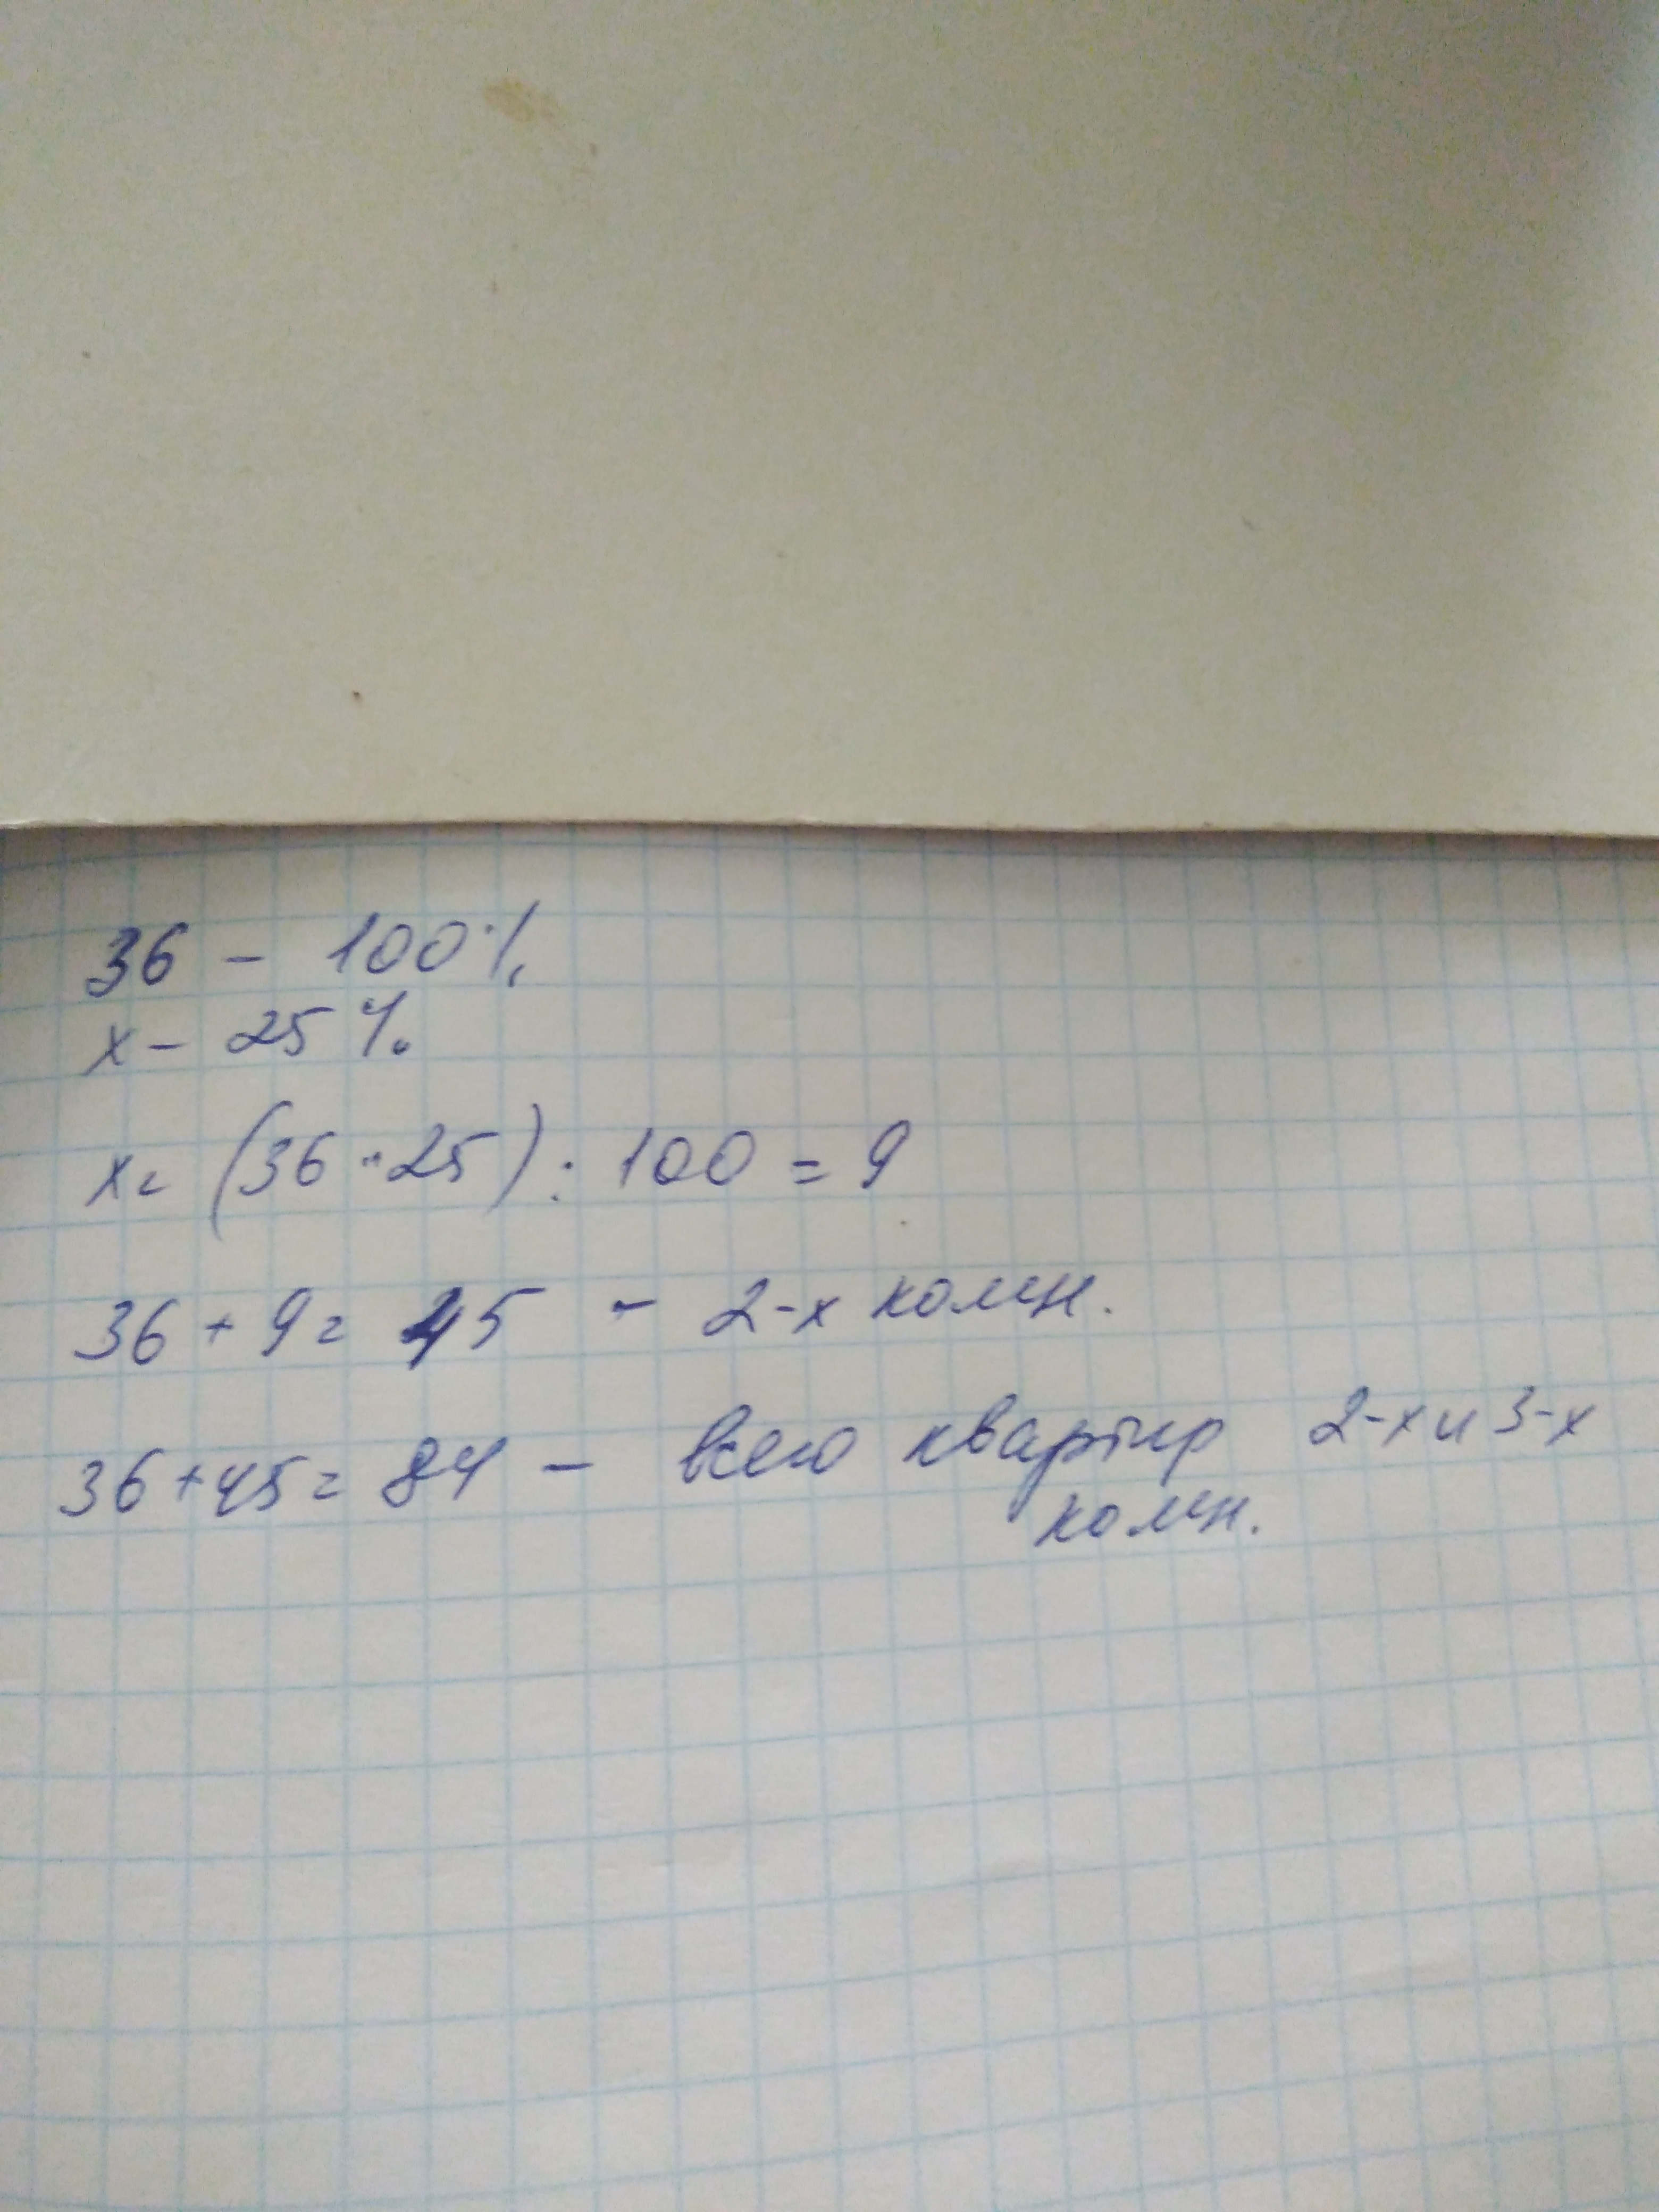 36 - 100%
х - 25%
х = (36 · 25) : 100 = 9
36 + 9 = 45 - 2-х комн.
36 + 45 = 84 - всего квартир 2-х и 3-х
комн.